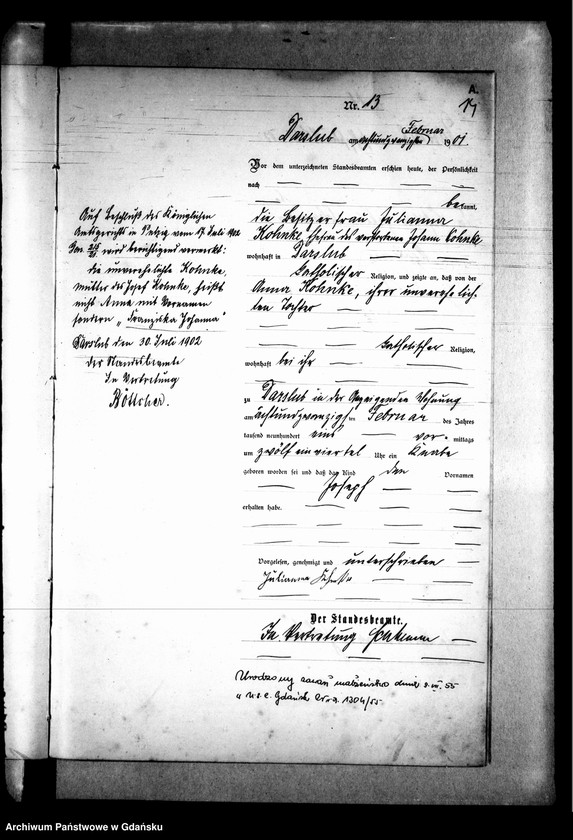 A.
17
Nr. 13
Darslub am achtundzwanzigsten Februar 1901.
Vor dem unterzeichneten Standesbeamten erschien heute, der Persönlichkeit
nach
bekannt,
die Besitzerfrau Julianna
Kohnke, Ehefrau des verstorbenen Johann Kohnke
wohnhaft in Darslub
katholischer Religion, und zeigte an, daß von der
Anna Kohnke, ihrer unverehelich-
ten Tochter
katholischer Religion,
wohnhaft bei ihr
zu Darslub in der Anzeigenden Wohnung
am achtundzwanzigsten Februar des Jahres
tausend neunhundert eins vor mittags
um zwölf ein viertel Uhr ein Knabe
geboren worden sei und daß das Kind den Vornamen
Joseph
erhalten habe.
Vorgelesen, genehmigt und unterschrieben
Julianna Kohnke
Der Standesbeamte.
In Vertretung
Auf Beschluß des Königlichen
Amtsgerichts in Putzig vom 17. Juli 1902
wird berichtigend vermerkt:
die unverehelichte Kohnke,
Mutter des Josef Kohnke, heißt
nicht Anna mit Vornamen
sondern „Franziska Johanna"
Darslub den 30. Juli 1902
Der Standesbeamte
In Vertretung
Böttcher.
Urodzony zawarł małżeństwo dnia 8.III.55
w U.S.C. Gdańsk Nr 1304/55
Archiwum Państwowe w Gdańsku